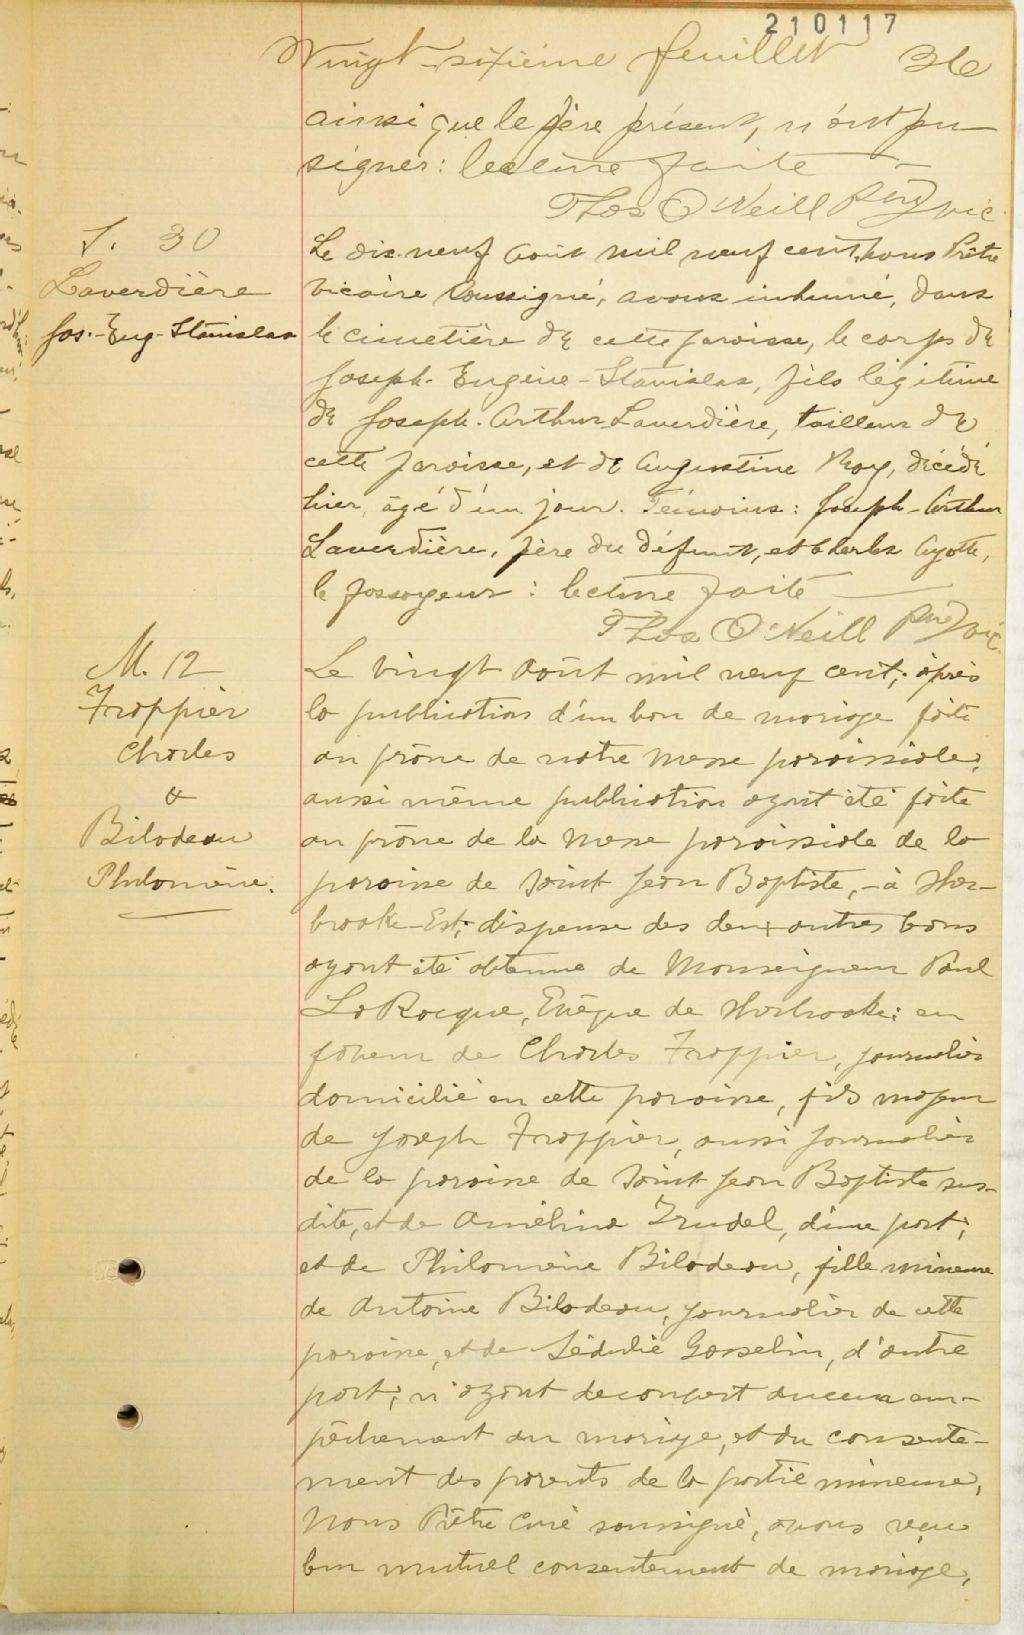 210117
Vingt-sixième feuillet 26
ainsi que le père présent, n'ont pu
signer: lecture faite
Thos O'Neill Ptre vic.
S. 30
Laverdière
Jos.-Eug-Stanislas
Le dix-neuf août mil neuf cent, nous Prêtre
Vicaire soussigné, avons inhumé, dans
le cimetière de cette paroisse, le corps de
Joseph-Eugène-Stanislas, fils légitime
de Joseph-Arthur Laverdière, tailleur de
cette paroisse, et de Augustine Roy, décédé
hier, âgé d'un jour. Témoins: Joseph-Arthur
Laverdière, père du défunt, et Charles Ayotte,
le fossoyeur: lecture faite
Thos O'Neill Ptre vic.
M. 12
Frappier
Charles
&
Bilodeau
Philomène.
Le vingt août mil neuf cent; après
la publication d'un ban de mariage faite
au prône de notre Messe paroissiale;
aussi même publication ayant été faite
au prône de la Messe paroissiale de la
paroisse de Saint Jean Baptiste, à Sher-
brooke-Est; dispense des deux autres bans
ayant été obtenue de Monseigneur Paul
LaRocque, Evêque de Sherbrooke: en
faveur de Charles Frappier, journalier
domicilié en cette paroisse, fils majeur
de Joseph Frappier, aussi journalier
de la paroisse de Saint Jean Baptiste sus-
dite, et de Amélina Trudel, d'une part;
et de Philomène Bilodeau, fille mineure
de Antoine Bilodeau, journalier de cette
paroisse, et de Sédulie Gosselin, d'autre
part; n'ayant decouvert aucun em-
pêchement au mariage, et du consente-
ment des parents de la partie mineure,
Nous Prêtre Curé soussigné, avons reçu
leur mutuel consentement de mariage,